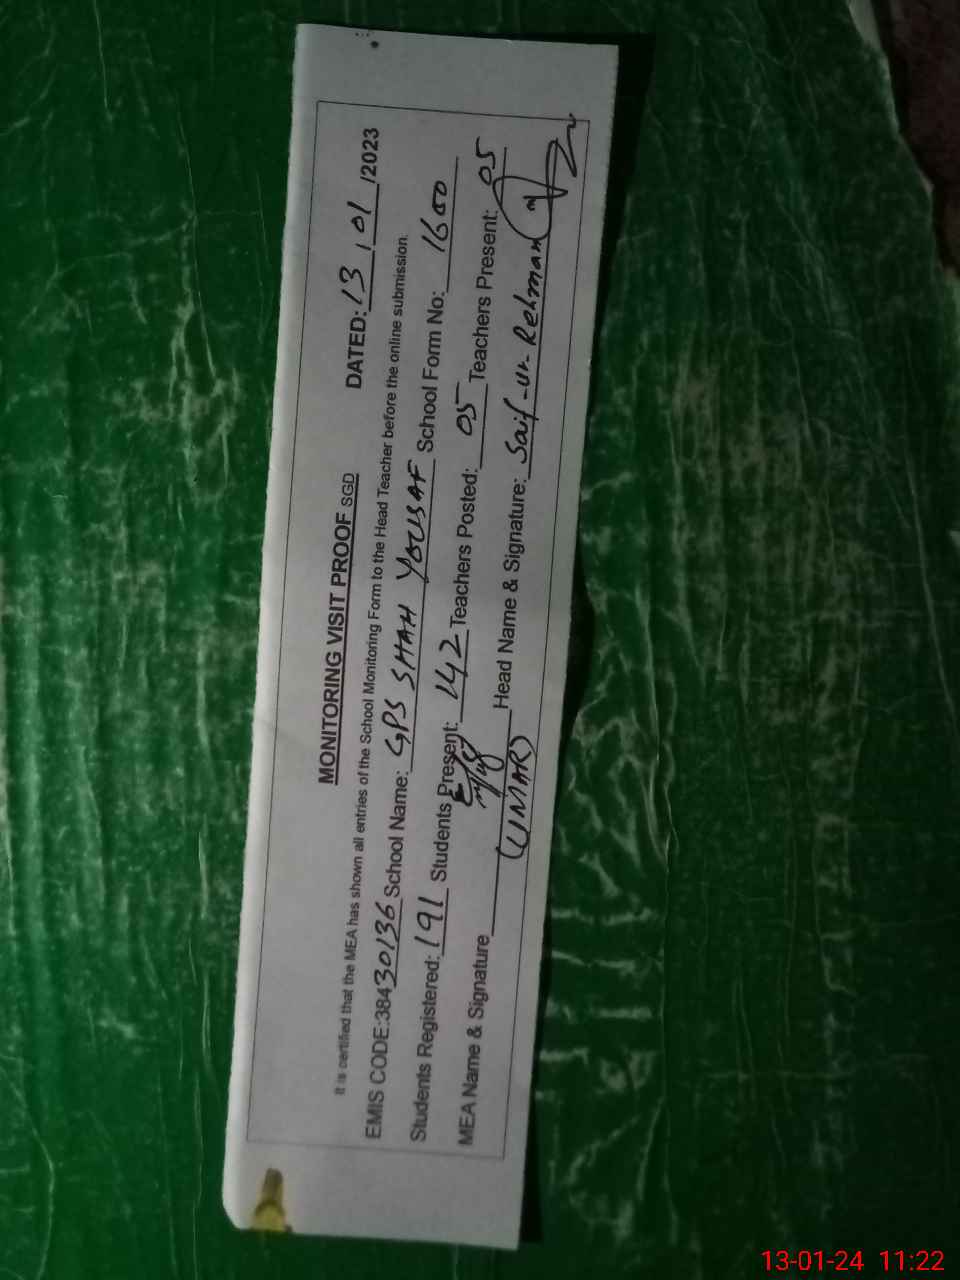 MONITORING VISIT PROOF SGD
DATED: 13 / 01 /2023
It is certified that the MEA has shown all entries of the School Monitoring Form to the Head Teacher before the online submission.
EMIS CODE:38430136 School Name: GPS SHAH YOUSAF School Form No: 1600
Students Registered: 191 Students Present: 142 Teachers Posted: 05 Teachers Present: 05
MEA Name & Signature (UMAR) Head Name & Signature: Saif-ur-Rehman
13-01-24 11:22